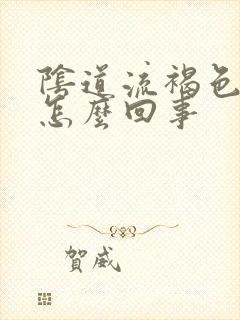 陰道流褐色
怎麼回事
賀威